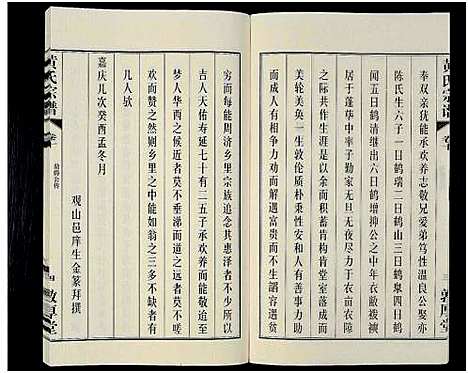 黄氏宗谱
奉双亲犹能承欢养志敬兄爱弟笃性温良公娶亦
陈氏生六子一曰鹤瑞二曰鹤
三曰鹤泉四曰鹤
闻五曰鹤清继出六曰鹤增抑公之中年衣敝衣
居于蓬荜中率子勤家无旦无夜尽力于衣衣田
之际共作生涯日增月累因而积蓄肯构肯堂室
美轮美奂一生敦伦质朴秉性安和与人有善事力助
人有争端力劝而解遇富贵而不生谄容逢贫
穷而每能周济乡里宗族追念其惠泽者曰
吉人天佑寿延七十有二五子承欢养而能若
梦入华西之候近者莫不垂涕而道之远者莫不
欢而赞之然则乡里之中能如翁之三多不缺者有
几人欤
嘉庆几次癸酉孟冬月
观山邑庠生金篆拜撰
黄氏宗谱
卷一
四
敦厚堂
三
敦厚堂